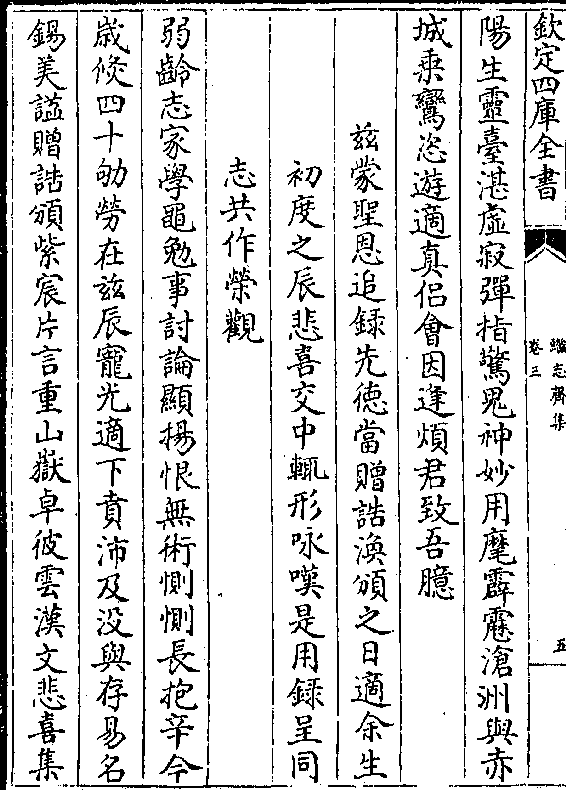 欽定四庫全書
蟻㤙齋集
卷三
五
陽生靈臺湛虛寂彈指驚鬼神妙用麾霹靂滄洲與赤
城乘鸞恣遊適真侣會因逢煩君致吾臆
兹蒙聖恩追録先德當贈誥渙頒之日適余生
初度之辰悲喜交中輒形咏嘆是用録呈同
志共作榮觀
弱齡志家學黽勉事討論顯揚恨無術惻惻長抱辛今
歲倐四十劬勞在兹辰寵光適下賁沛及没與存易名
錫美諡贈誥頒紫宸片言重山嶽卓彼雲漢文悲喜集